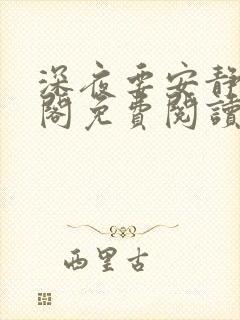 深夜要安靜
閣免費閱讀
西里古